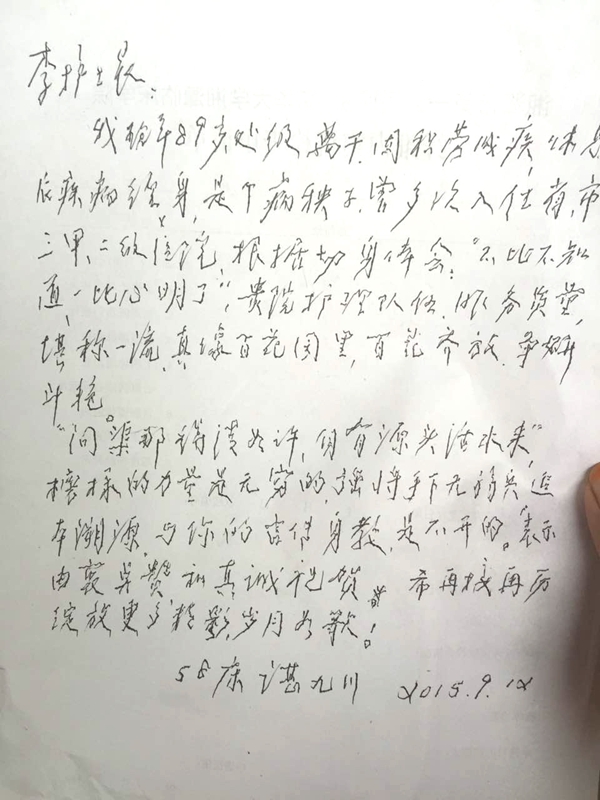 李护士长
我现年89岁处级离干,因积劳成疾,休息
后疾病经身,是个病秧子,曾多次入住省,市
三甲,二级医院,根据切身体会:“不比不知
道,一比心明了”,贵院护理队伍,服务质量,
堪称一流,真像百花园里,百花齐放,争妍
斗艳。
“问渠那得清如许,自有源头活水来”,
榜样的力量是无穷的,强将手下无弱兵,追
本溯源,与你的言传身教,是不开的。表示
由衷点赞和真诚祝贺 希再接再厉
绽放更多精彩,岁月如歌!
58床 谌九川 2015.9.12